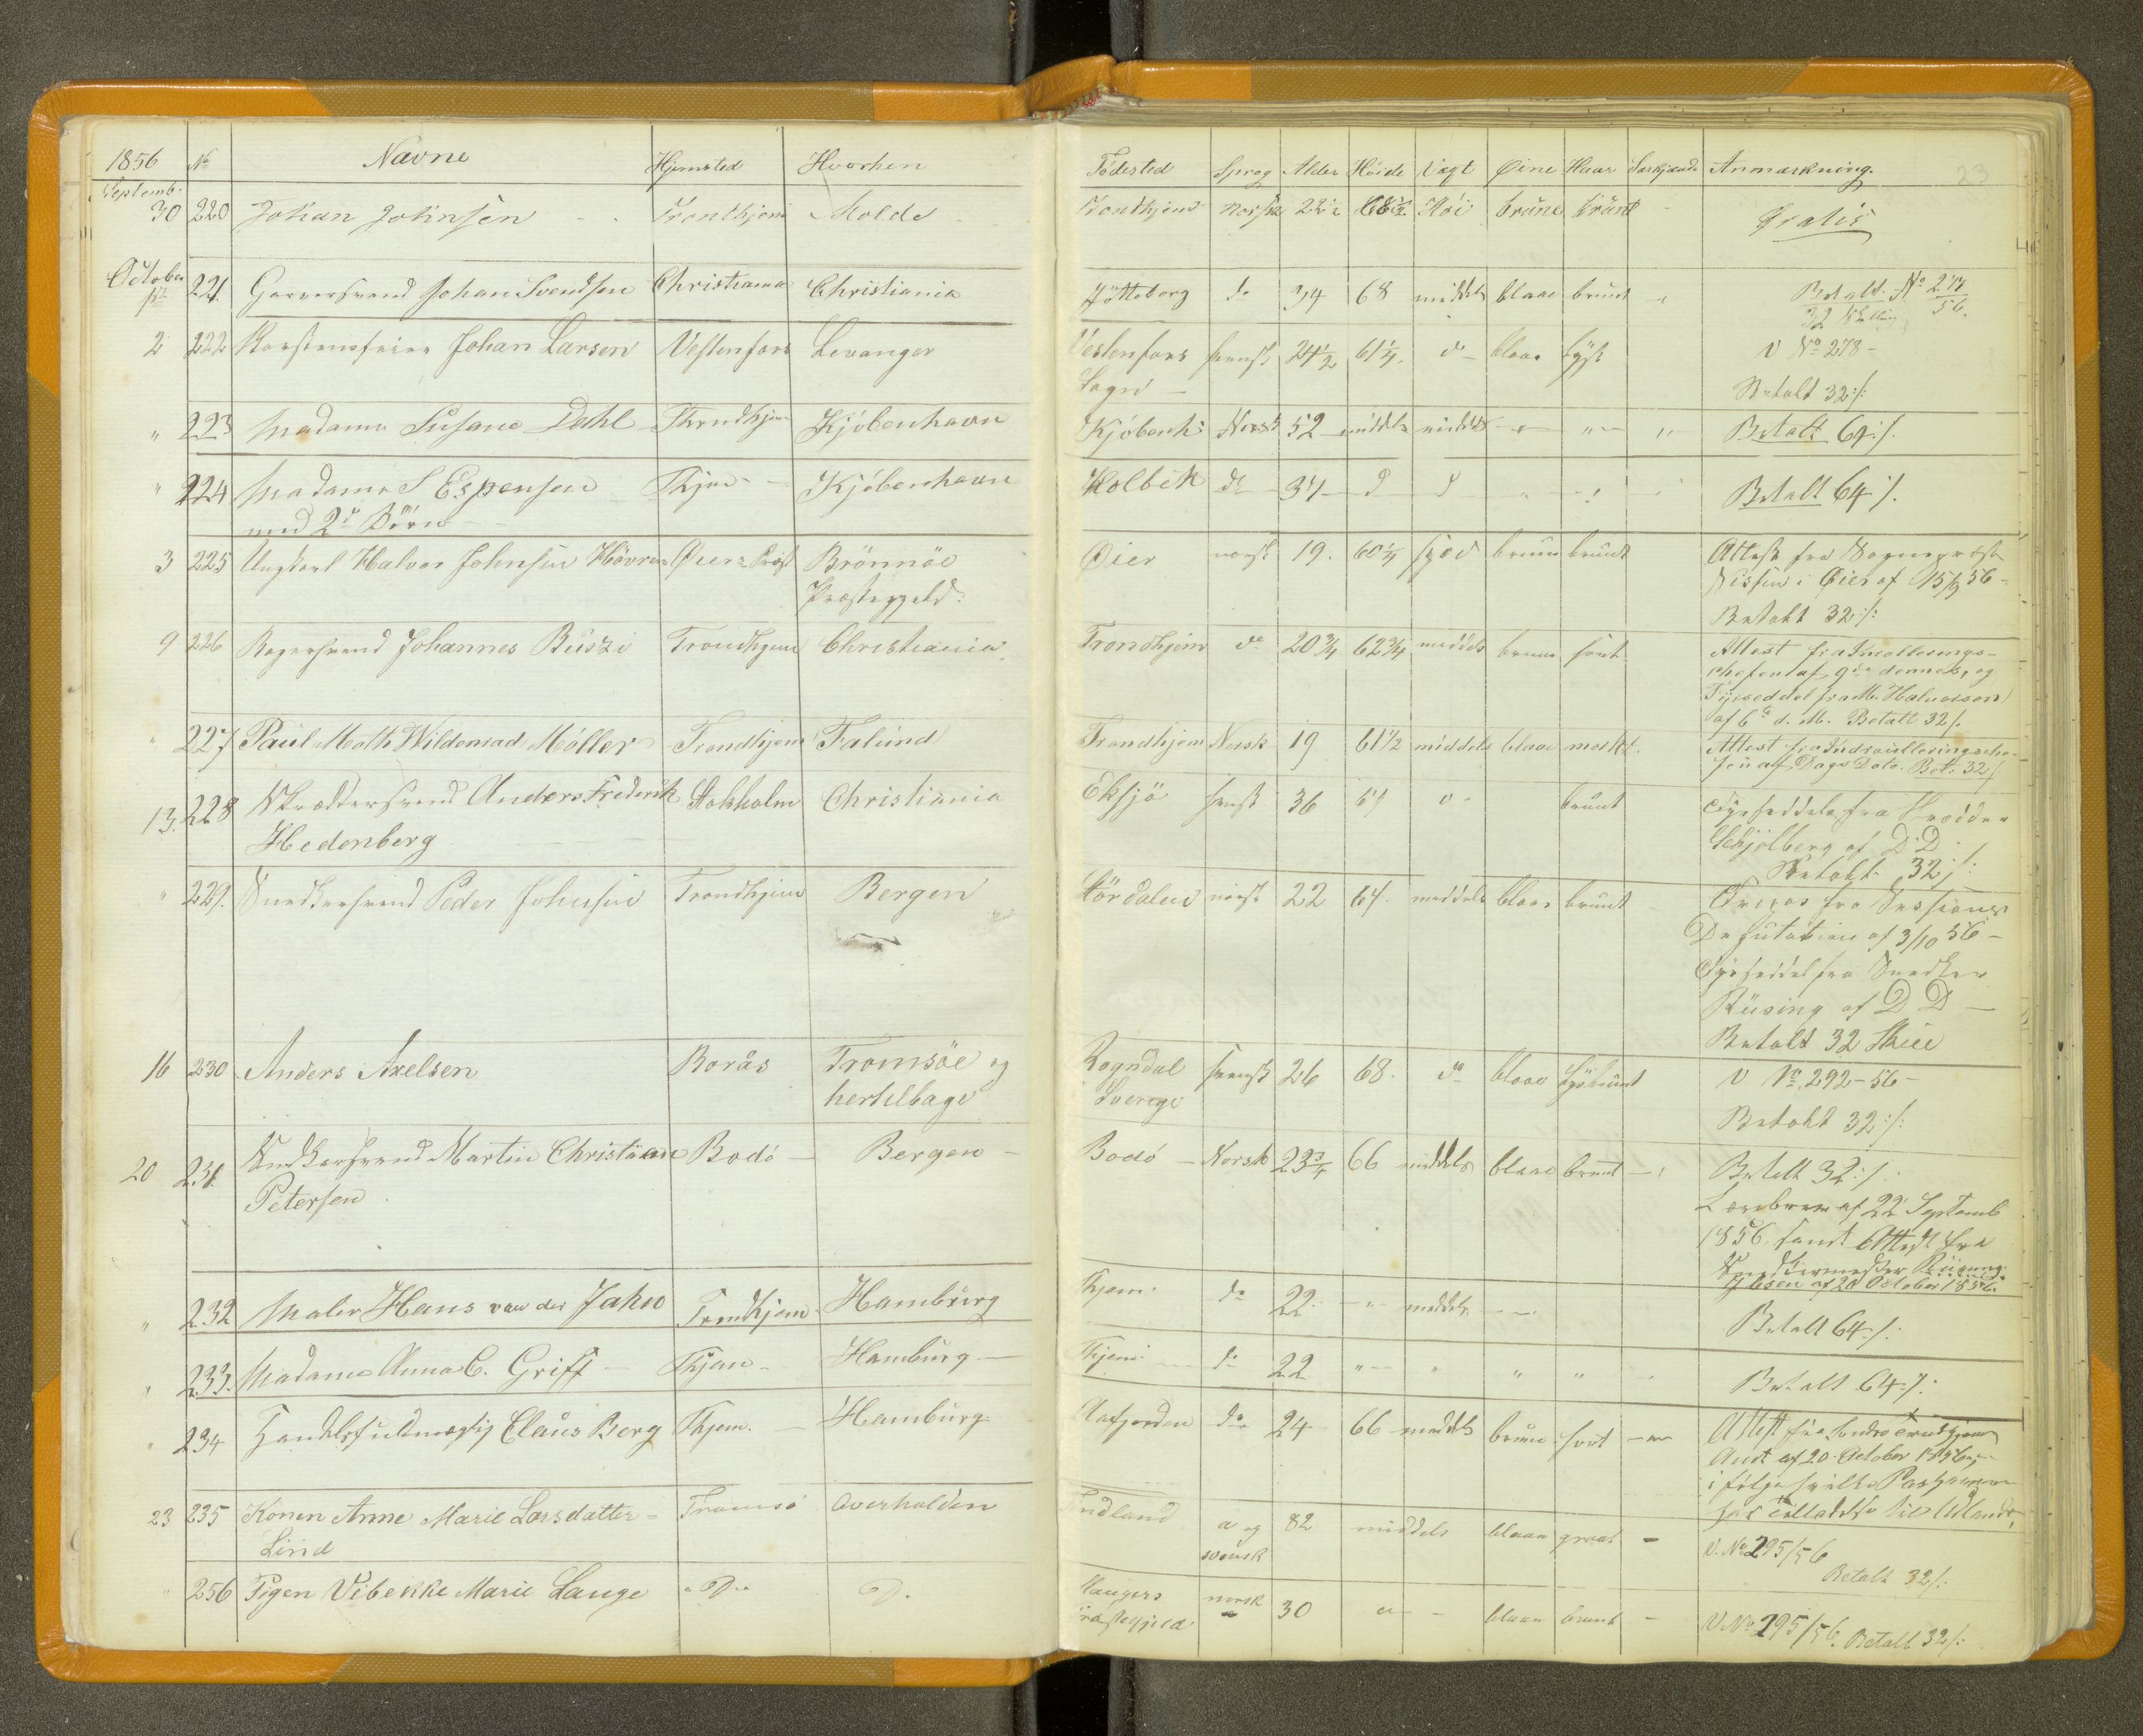 1856 No Navne Hjemsted Hvorhen Födested Sprog Alder Höide Vægt Øine Haar Anmærkning. 23
Septemb.
30 220 Johan Johnsen Trondhjem Molde Trondhjem norsk 68½ Höi brune brünt Gratis
October
1st 221. Garversvend Johan Svendsen Christiania Christiania Göttebörg do 34 68 middels blaae brünt Betalt. No 273/56.
32 Skilling
2 222 Johan Larsen Vestenfors Levanger Vestenfors svensk 24½ 61¼. do blaae lyst V No 278-
Betalt 32 ./.
" 223 Madame Susane Dehl Trondhjem Kjöbenhavn Kjöbenh: Norsk 52 middels middels " " " Betalt 64 ./.
" 224 Madame S Espensen Thjem Kjöbenhavn Holbek do 34 d d " " " Betalt 64 ./.
med 2de Börn
3 225 Ungkarl Halvor Johnsen Øier Præst Brönnöe Øier norsk 19. 60¼ spæd brune brünt Attest fra Sognepræst
Præstegjeld. Nissen i Øier af 15/9 56-
Betalt 32 ./.
9 226 Bagersvend Johannes Trondhjem Christiania Trondhjem do 20¾ 62¾ middels brune sort Attest fra
af 9de dennes, og
fra M. Halvorsen
af 6te d. M. Betalt 32 ./.
" 227 Paul Moth Wildenrad Möller Trondhjem Falund Trondhjem Norsk 19 61½ middels blaae mørkt. Attest fra
af Dags Dato. Bet: 32 ./.
13. 228 Skræddersvend Anders Frederik Stokholm Christiania Eksjö svensk 36 61 d- brünt Syeseddel fra Skrædder
Hedenberg Schjölberg af D: D.
Betalt 32 ./.
" 229. Snedkersvend Peder Johnsen Trondhjem Bergen Stördalen norsk 22 64. middels blaae brünt fra Sessions
Deputation af 3/10 56-
fra Snedker
Rüsing af D D -
Betalt 32 Skill
16 230 Anders Axelsen Borås Tromsöe og Rogndal svensk 26 68. do blaae lysbrünt V No 292-56-
hertilbage Sverige Betalt 32 ./.
20 231. Snedkersvend Martin Christian Bodö Bergen Bodö Norsk 23¾ 66 middels blaae brunt Betalt 32 ./.
Petersen Lærebrev af 22 Septemb
1856. samt Attest fra
Snedkermester
af 20 October 1856.
" 232 Maler Hans van der Jahn Trondhjem Hambürg Thjem. do 22. " middels Betalt 64 ./.
" 233. Madame Anna C. Griff Thjem Hamburg Thjem: do 22 " " " " Betalt 64 ./.
" 234 Handelsfuldmægtig Claus Berg Thjem. Hamburg Aafjorden do 24 66 middels brune sort Attest fra Søndre Trondhjems
Amt af 20 October 1856,
i følge hvilke
har tilladelse til Udlandet.
23 235 Konen Anne Marie Larsdatter Tromsö Overhalden Findland do og 82 middels blaae graat - V. No 295/56
Lind svensk Betalt 32 ./.
" 256 Pigen Vibekke Marie Lange " D. " D. norsk 30 " blaae brunt - V No 295/56. Betalt 32 ./.